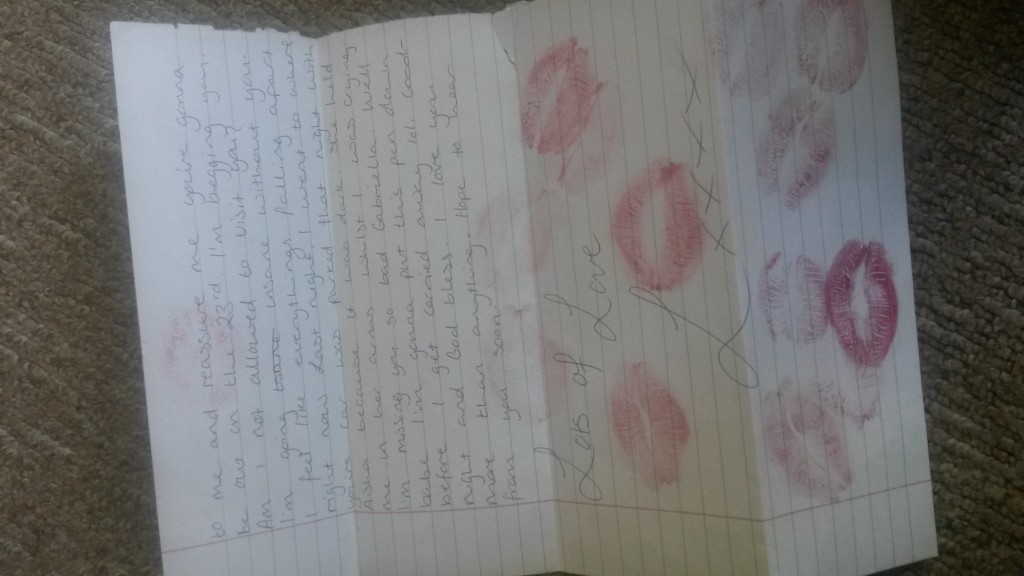 to me and reassure me you're gonna
be out on the 23rd I'm begging you.
Am I not allowed to visit you?
I'm going insane without you
I feel like everythings falling apart
right now. Last night I went to where
your car was parked that night with
Aisha because it was dark. Aisha held
me in her arms whilst I was crying
I'm missing you so bad Gabriella. Well
babe I'm gonna put this pen down
before I get carried away lol. Good-
night and God bless. I love you
more than anything. Hope to hear
from you soon.
Lots of Love
L xxxx